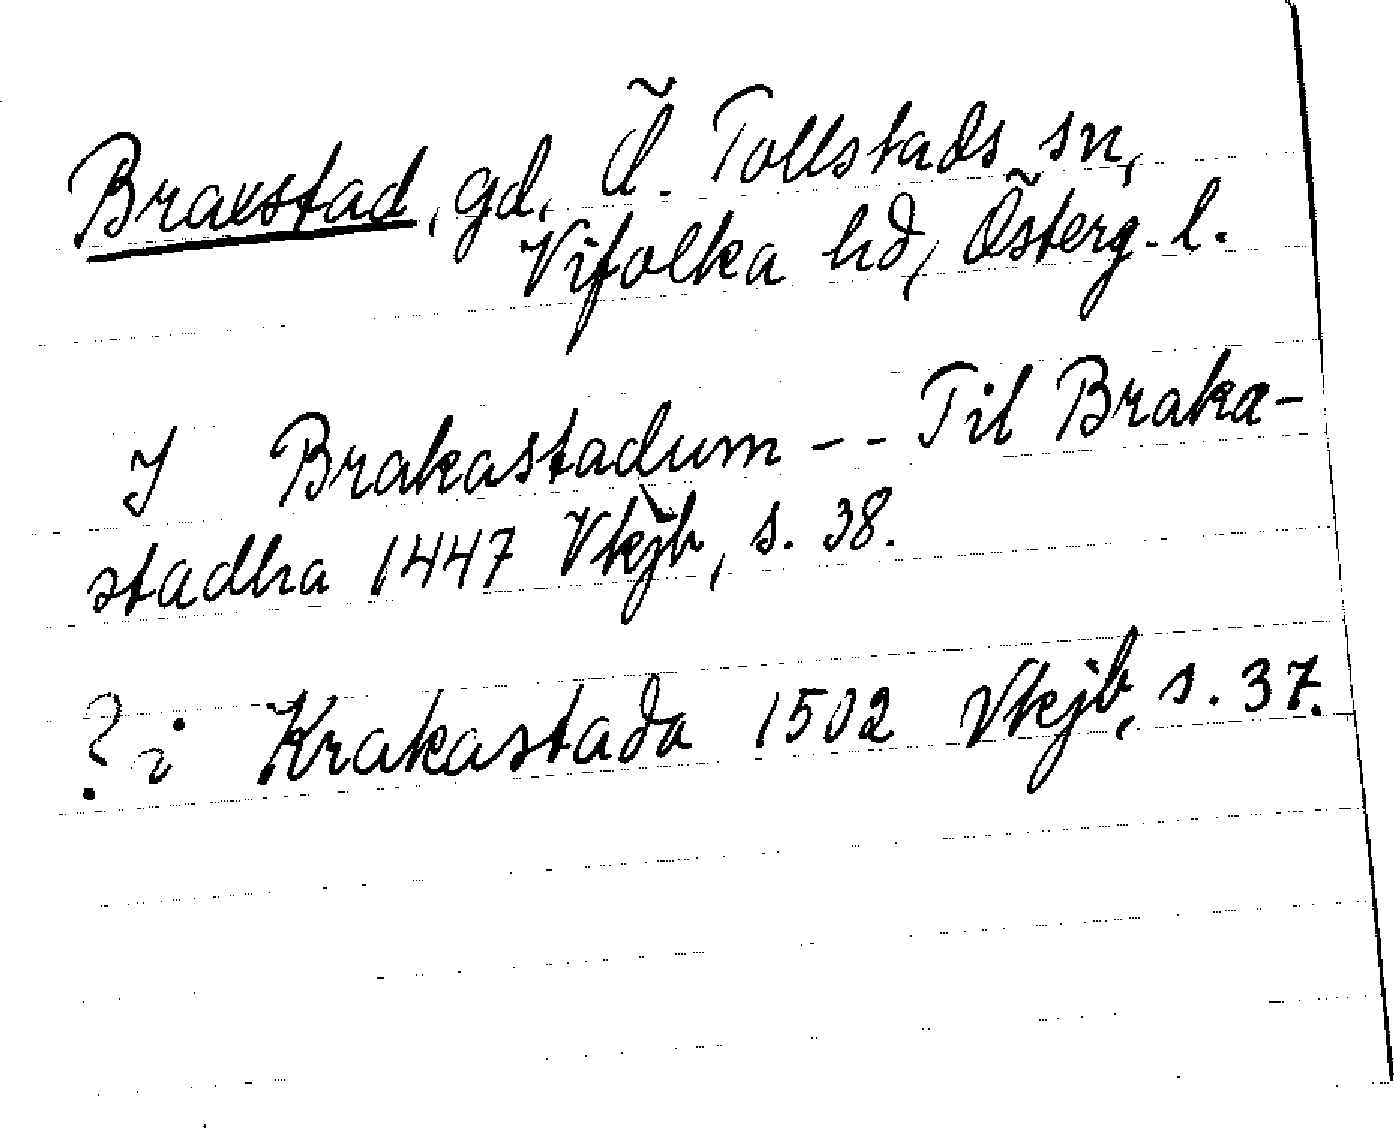 Braxstad, gd, Ö. Tollstads sn,
Vifolka hd, Österg. l.
I Brakastadum -- Til Braka-
stadha 1447 Vkjb, s. 38.
? i Krakastada 1502 Vkjb, s. 37.